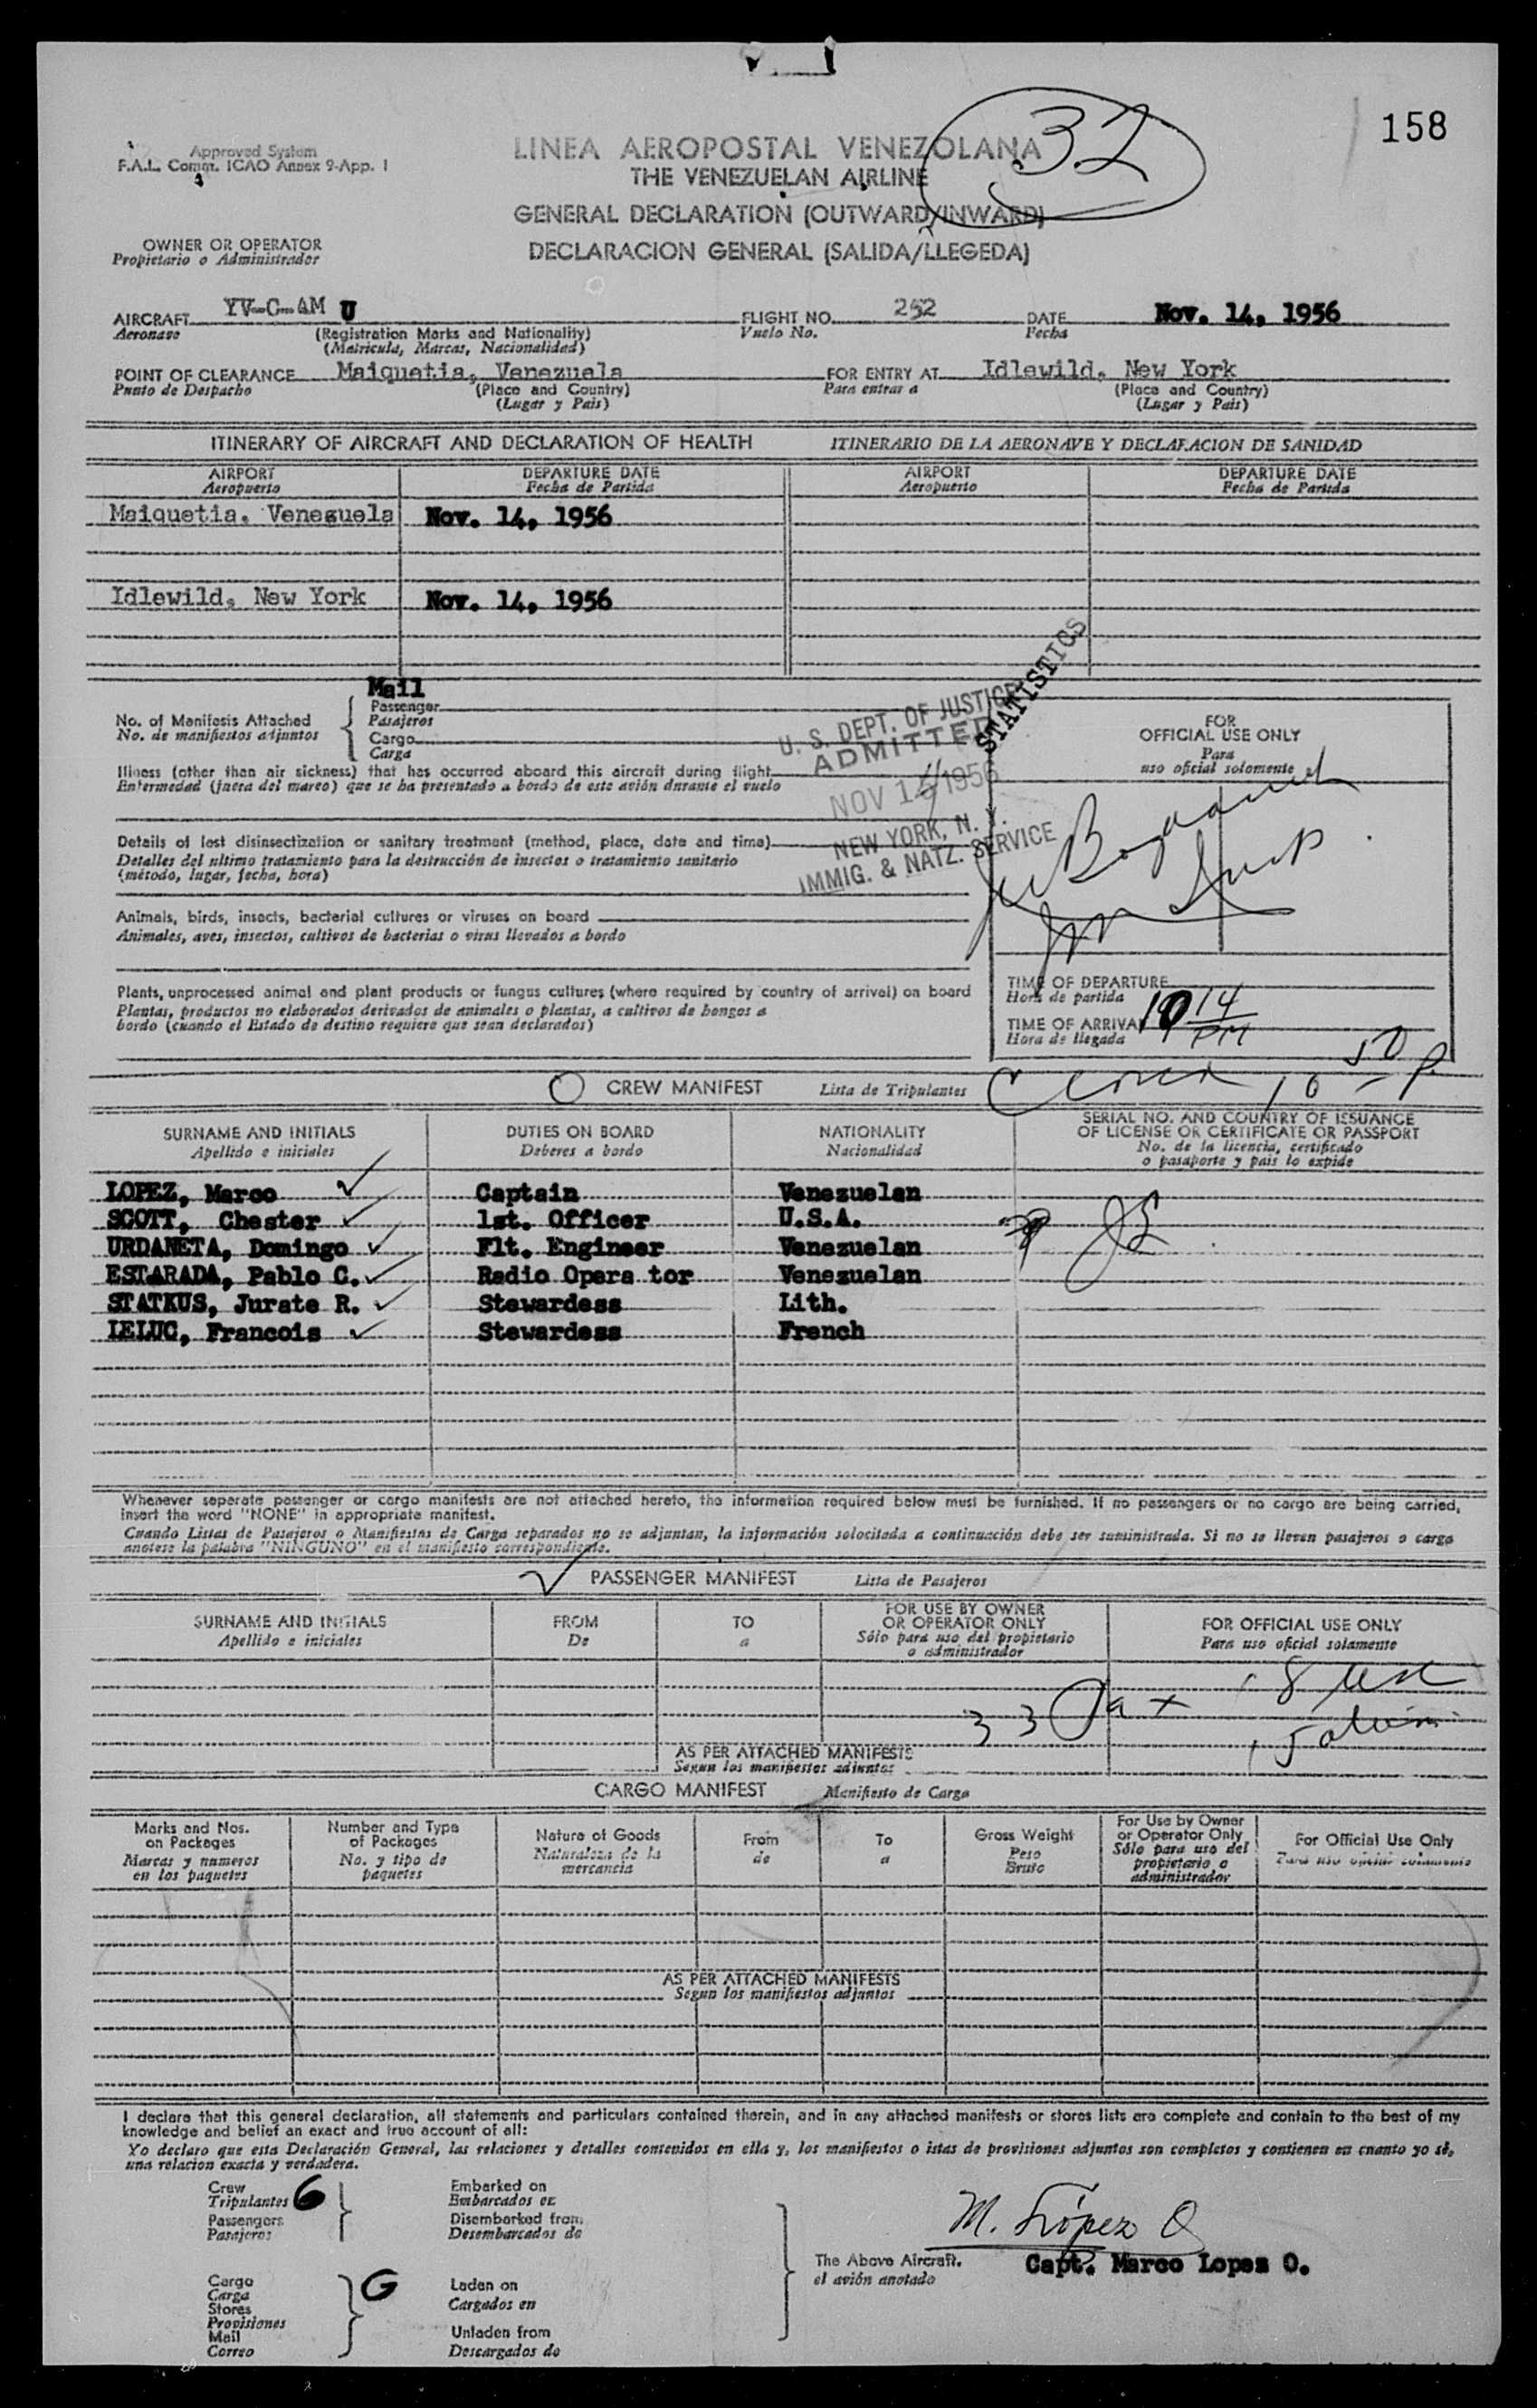 158
32
Approved System
F.A.L. Comm. ICAO Annex 9-App. 1
LINEA AEROPOSTAL VENEZOLANA
THE VENEZUELAN AIRLINE
GENERAL DECLARATION (OUTWARD/INWARD)
DECLARACION GENERAL (SALIDA/LLEGEDA)
OWNER OR OPERATOR
Propietario o Administrador
AIRCRAFT YV-C-AM U FLIGHT NO. 252 DATE Nov. 14, 1956
Aeronave (Registration Marks and Nationality) Vuelo No. Fecha
(Matricula, Marcas, Nacionalidad)
POINT OF CLEARANCE Maiquetia, Venezuela FOR ENTRY AT Idlewild, New York
Punto de Despacho (Place and Country) Para entrar a (Place and Country)
(Lugar y Pais) (Lugar y Pais)
ITINERARY OF AIRCRAFT AND DECLARATION OF HEALTH ITINERARIO DE LA AERONAVE Y DECLARACION DE SANIDAD
AIRPORT DEPARTURE DATE AIRPORT DEPARTURE DATE
Aeropuerto Fecha de Partida Aeropuerto Fecha de Partida
Maiquetia, Venezuela Nov. 14, 1956
Idlewild, New York Nov. 14, 1956
Mail
No. of Manifests Attached
No. de manifiestos adjuntos
Passenger
Pasajeros
Cargo
Carga
U. S. DEPT. OF JUSTICE
ADMITTED
STATISTICS
NOV 14 1956
NEW YORK, N. Y.
IMMIG. & NATZ. SERVICE
FOR
OFFICIAL USE ONLY
Para
uso oficial solomente
Illness (other than air sickness) that has occurred aboard this aircraft during flight
Enfermedad (fuera del mareo) que se ha presentado a bordo de este avión durante el vuelo
Details of last disinsectization or sanitary treatment (method, place, date and time)
Detalles del ultimo tratamiento para la destrucción de insectos o tratamiento sanitario
(método, lugar, fecha, hora)
Animals, birds, insects, bacterial cultures or viruses on board
Animales, aves, insectos, cultivos de bacterias o virus llevados a bordo
Plants, unprocessed animal and plant products or fungus cultures (where required by country of arrival) on board
Plantas, productos no elaborados derivados de animales o plantas, a cultivos de hongos a
bordo (cuando el Estado de destino requiere que sean declarados)
TIME OF DEPARTURE
Hora de partida
TIME OF ARRIVAL 10 14 PM
Hora de llegada
10 50 P.
CREW MANIFEST Lista de Tripulantes
SURNAME AND INITIALS DUTIES ON BOARD NATIONALITY SERIAL NO. AND COUNTRY OF ISSUANCE
OF LICENSE OR CERTIFICATE OR PASSPORT
Apellido e iniciales Deberes a bordo Nacionalidad No. de la licencia, certificado
o pasaporte y pais lo expide
LOPEZ, Marco Captain Venezuelan
SCOTT, Chester 1st. Officer U.S.A.
URDANETA, Domingo Flt. Engineer Venezuelan
ESTARADA, Pablo C. Radio Opera tor Venezuelan
STATKUS, Jurate R. Stewardess Lith.
LELUC, Francois Stewardess French
Whenever separate passenger or cargo manifests are not attached hereto, the information required below must be furnished. If no passengers or no cargo are being carried,
insert the word "NONE" in appropriate manifest.
Cuando Listas de Pasajeros o Manifiestos de Carga separados no se adjuntan, la información solocitada a continuación debe ser suministrada. Si no se lleven pasajeros o carga
anotese la palabra "NINGUNO" en el manifiesto correspondiente.
PASSENGER MANIFEST Lista de Pasajeros
SURNAME AND INITIALS FROM TO FOR USE BY OWNER
OR OPERATOR ONLY FOR OFFICIAL USE ONLY
Apellido e iniciales De a Sólo para uso del propietario
o administrador Para uso oficial solamente
33 Pax
AS PER ATTACHED MANIFESTS
Segun los manifiestos adjuntos
CARGO MANIFEST Manifiesto de Carga
Marks and Nos.
on Packages
Marcas y numeros
en los paquetes
Number and Type
of Packages
No. y tipo de
paquetes
Nature of Goods
Naturaleza de la
mercancia
From
de
To
a
Gross Weight
Peso
Bruto
For Use by Owner
or Operator Only
Sólo para uso del
propietario o
administrador
For Official Use Only
Para uso oficial solamente
AS PER ATTACHED MANIFESTS
Segun los manifiestos adjuntos
I declare that this general declaration, all statements and particulars contained therein, and in any attached manifests or stores lists are complete and contain to the best of my
knowledge and belief an exact and true account of all:
Yo declaro que esta Declaración General, las relaciones y detalles contenidos en ella y, los manifiestos o istas de provisiones adjuntos son completos y contienen en cuanto yo sé,
una relacion exacta y verdadera.
Crew
Tripulantes 6
Passengers
Pasajeros
Embarked on
Embarcados en
Disembarked from
Desembarcados de
Cargo
Carga
Stores
Provisiones
Mail
Correo
G
Laden on
Cargados en
Unladen from
Descargados de
The Above Aircraft.
el avión anotado
M. López O
Capt. Marco Lopez O.